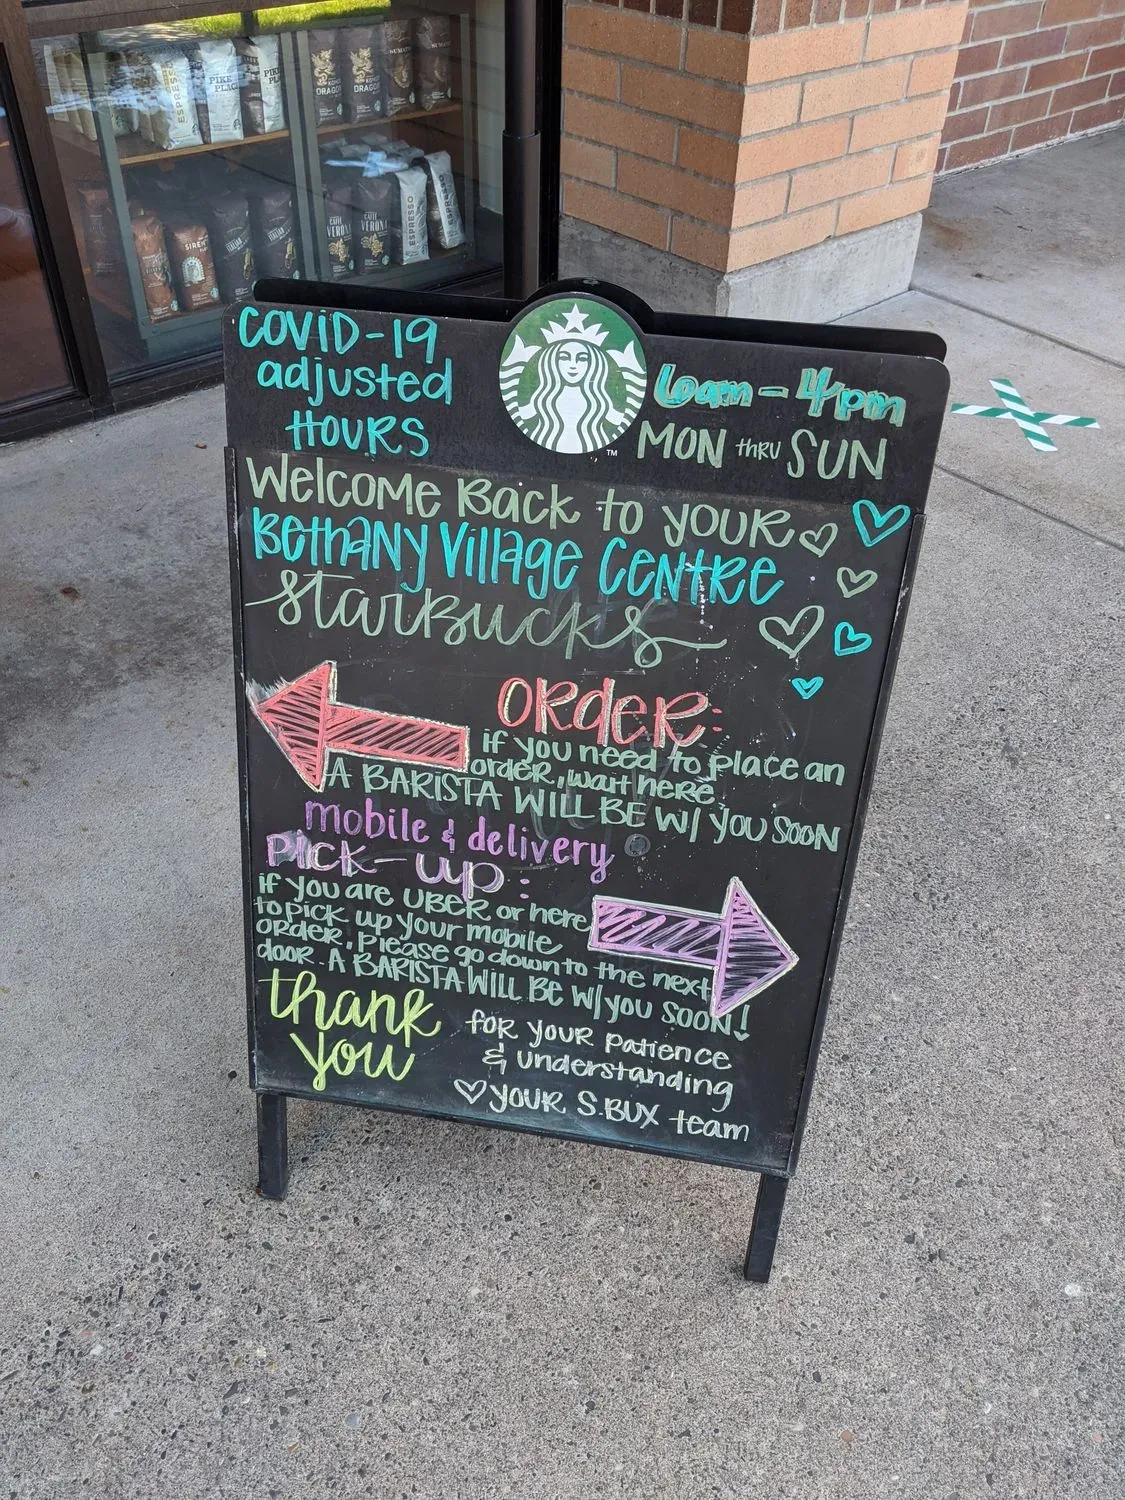 ESPRESSO
PIKE
PLACE
PIKE
PLACE
DRAGON
DRAGON
SUMATRA
SUMATRA
CAFFÈ
VERONA
CAFFÈ
VERONA
ESPRESSO
COVID-19
adjusted
HOURS
6am - 4pm
MON thru SUN
TM
Welcome Back to your
Bethany Village Centre
Starbucks
Order:
if you need to place an
order, wait here.
A BARISTA WILL BE W/ YOU SOON
mobile & delivery
Pick-up:
if you are UBER or here
to pick up your mobile
order, please go down to the next
door. A BARISTA WILL BE W/ you SOON!
thank
you
for your patience
& understanding
♡ YOUR S.BUX team